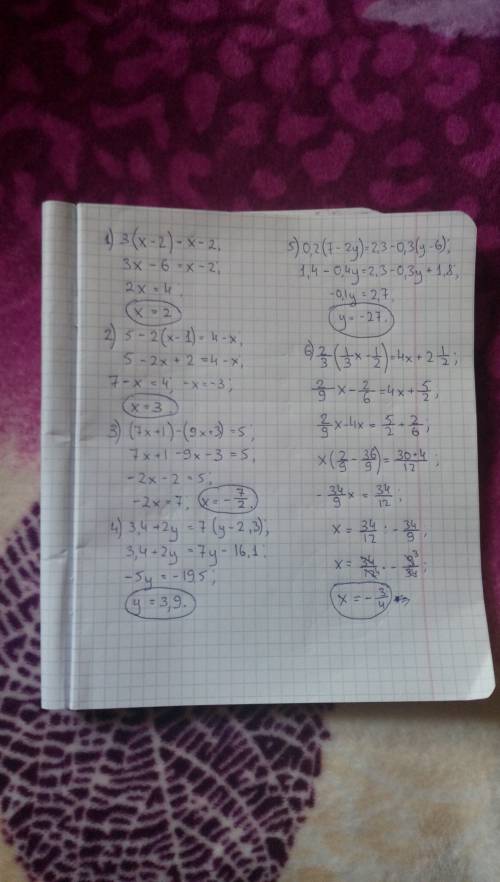 1) 3(x-2)-x-2,
3x-6=x-2;
2x=4
x=2
2) 5-2(x-1)=4-x,
5-2x+2=4-x,
7-x=4; -x=-3;
x=3
3) (7x+1)-(9x+3)=5;
7x+1-9x-3=5;
-2x-2=5;
-2x=7, x=-7/2
4) 3,4+2y=7(y-2,3);
3,4+2y=7y-16,1;
-5y=-19,5;
y=3,9.
5) 0,2(7-2y)=2,3-0,3(y-6);
1,4-0,4y=2,3-0,3y+1,8,
-0,1y=2,7,
y=-27.
6) 2/3(1/3x-1/2)=4x+2 1/2;
2/9x-2/6=4x+5/2;
2/9x-4x=5/2+2/6;
x(2/9-36/9)=30+4/12;
-34/9x=34/12;
x=34/12·-34/9
x=34/12·-9/34;
x=-3/4